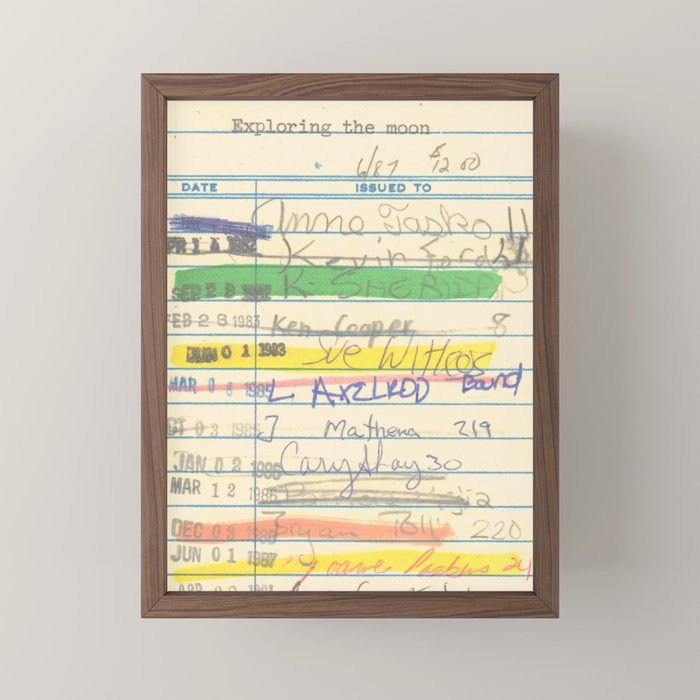 Exploring the moon
6/87 $12.00
DATE ISSUED TO
Anne Tasko 11
APR 14 1982 Kevin Ford
SEP 28 1982 K. SHERIDAN
FEB 28 1983 Ken Cooper 8
JUN 01 1983 Sue Wittcos
MAR 06 1985 L AXELROD Band
OCT 03 1985 J Mathena 219
JAN 02 1986 Cary Shay 30
MAR 12 1986
DEC 03 1986 Bryan 220
JUN 01 1987